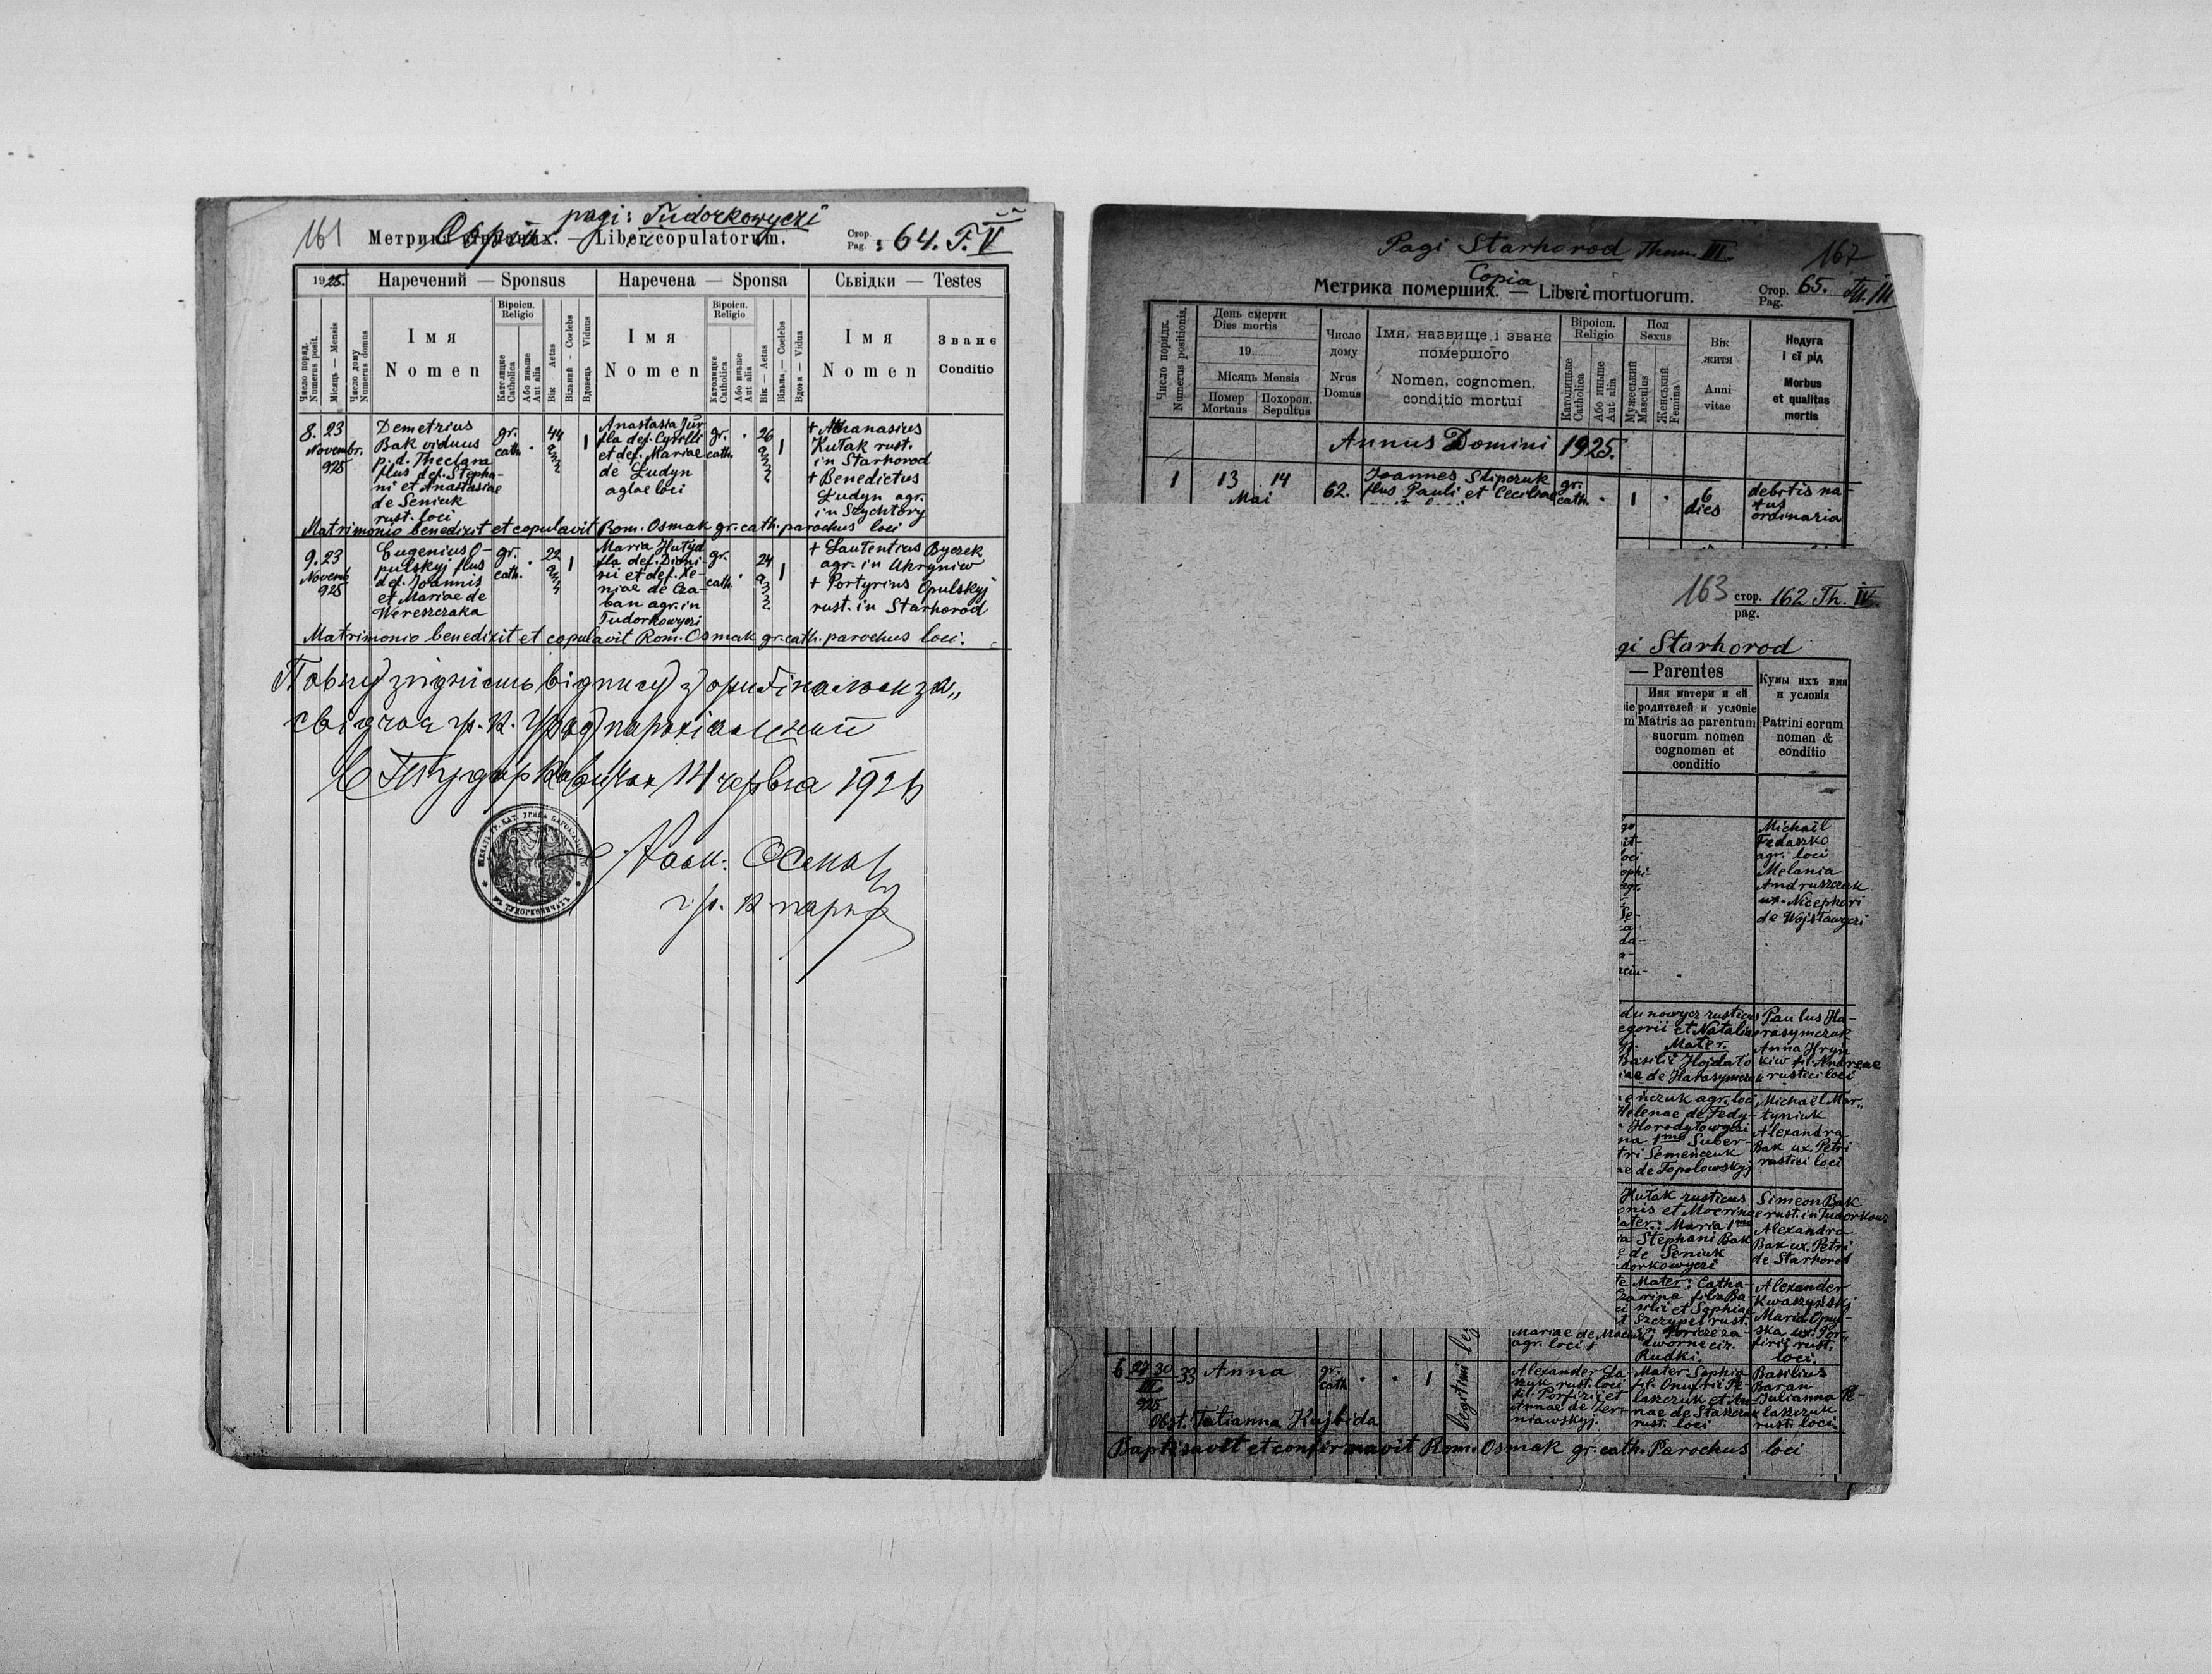 161
pagi: Tudorkowyczi
Copia
Метрика вінчаних. — Liberi copulatorum.
Стор.
Pag. : 64. T. V
1925. Наречений — Sponsus Наречена — Sponsa Сьвідки — Testes
Число поряд.
Numerus posit.
Місяць — Mensis
Число дому
Numerus domus
Імя
Nomen
Віроісп.
Religio
Католицке
Catholica
Або иньше
Aut alia
Вік — Aetas
Вільний — Coelebs
Вдовець Viduus
Імя
Nomen
Віроісп.
Religio
Католицке
Catholica
Або иньше
Aut alia
Вік — Aetas
Вільна — Coelebs
Вдова — Vidua
Імя
Nomen
Званє
Conditio
8. 23
Novembr.
925
Demetrius
Bak viduus
p. d. Theclara
flus def. Stepha-
ni et Anastasiae
de Seniuk
rust. loci
gr.
cath.
44
1
Anastasia
fla def. Cyrilli
et def. Mariae
de Ludyn
aglae loci
gr.
cath.
26
1
+ Athanasius
Kutak rust.
in Starhorod
+ Benedictus
Ludyn agr.
in Szychtory
Matrimonio benedixit et copulavit Rom. Osmak gr. cath. parochus loci
9. 23
Novemb
925
Eugenius O-
pulskyj flus
def. Joannis
et Mariae de
Wereszczaka
gr.
cath.
22
1
Maria Hutyd
fla def. Dioni-
sii et def. Xe-
niae de Cza-
ban agr. in
Tudorkowyczi
gr.
cath.
24
1
+ Lautentius Byczek
agr. in Uhryniw
+ Portyrius Opulskyj
rust. in Starhorod
Matrimonio benedixit et copulavit Rom. Osmak gr. cath. parochus loci.
Повну згідність відпису з оригіналом за„
свідчає гр. к. Уряд парохіальний
В Тудорковичах 14 червня 1926
Ром. Осмак
гр. к. парох
Pagi Starhorod Thom. III.
162
Copia
Метрика померших. — Liberi mortuorum.
Стор.
Pag. 65. Th. III
Число порядк.
Numerus positionis.
День смерти
Dies mortis
19
Місяць Mensis
Помер
Mortuus
Похорон.
Sepultus
Число
дому
Nrus
Domus
Імя, назвище і званє
помершого
Nomen, cognomen,
conditio mortui
Віроісп.
Religio
Католицьке
Catholica
Або иньше
Aut alia
Пол
Sexus
Мужеський
Masculus
Женський
Femina
Вік
житя
Anni
vitae
Недуга
і єї рід
Morbus
et qualitas
mortis
Annus Domini 1925.
1 13 14
Mai
62.
Joannes Slipczuk
flus Pauli et Ceciliae
gr.
cath.
1
6
dies
debitis na-
tus
ordinaria
163 стор. 162 Th. IV.
pag.
gi Starhorod
— Parentes
Имя матери и ей
родителей и условіе
Matris ac parentum
suorum nomen
cognomen et
conditio
Кумы ихъ имя
и условія
Patrini eorum
nomen &
conditio
Michaël
Fedaszko
agr. loci
Melania
Andruszczak
ux. Nicephori
de Wojstawyczi
dunowycz rusticus
egorii et Natalia
Mater.
Basilii Hojdato
iae de Harasymczuk
Paulus Ha-
rasymczuk
Anna Hryn
kiw fil. Andreae
rustici loci
enczuk agr. loci
Helenae de Fedy-
Horodytowyczi
na 1me Suber-
tri Semenczuk
ae de Topolowskyj
Michaël Mar„
tyniuk
Alexandra
Bak ux. Petri
rustici loci
Hutak rusticus
onis et Mocrinae
ater: Maria 1me
ia Stephani Bak
e de Seniuk
dorkowyczi
Simeon Bak
rust. in Tudorkow.
Alexandra
Bak ux. Petri
de Starhorod
Mariae de
agr. loci
Mater: Catha-
rina filia Ba-
silii et Sophiae
Szczypel rust.
dworne cir.
Rudki.
Alexander
Kwaszynskyj
Maria Opul-
ska ux. Por„
firii rust.
loci.
6 27 30
III.
925
33 Anna
gr.
cath
1
legitimi
Alexander
rust. loci
fil. Porfirii et
Annae de Zer-
niawskyj.
Mater Sophia
fil. Onufrii Pe-
laszczuk et An-
nae de Staszczuk
rust. loci
Basilius
Baran
Julianna Pe-
laszczuk
rust. loci
Obst. Tatianna Kujbida
Baptisavit et confirmavit Rom. Osmak gr. cath. Parochus loci